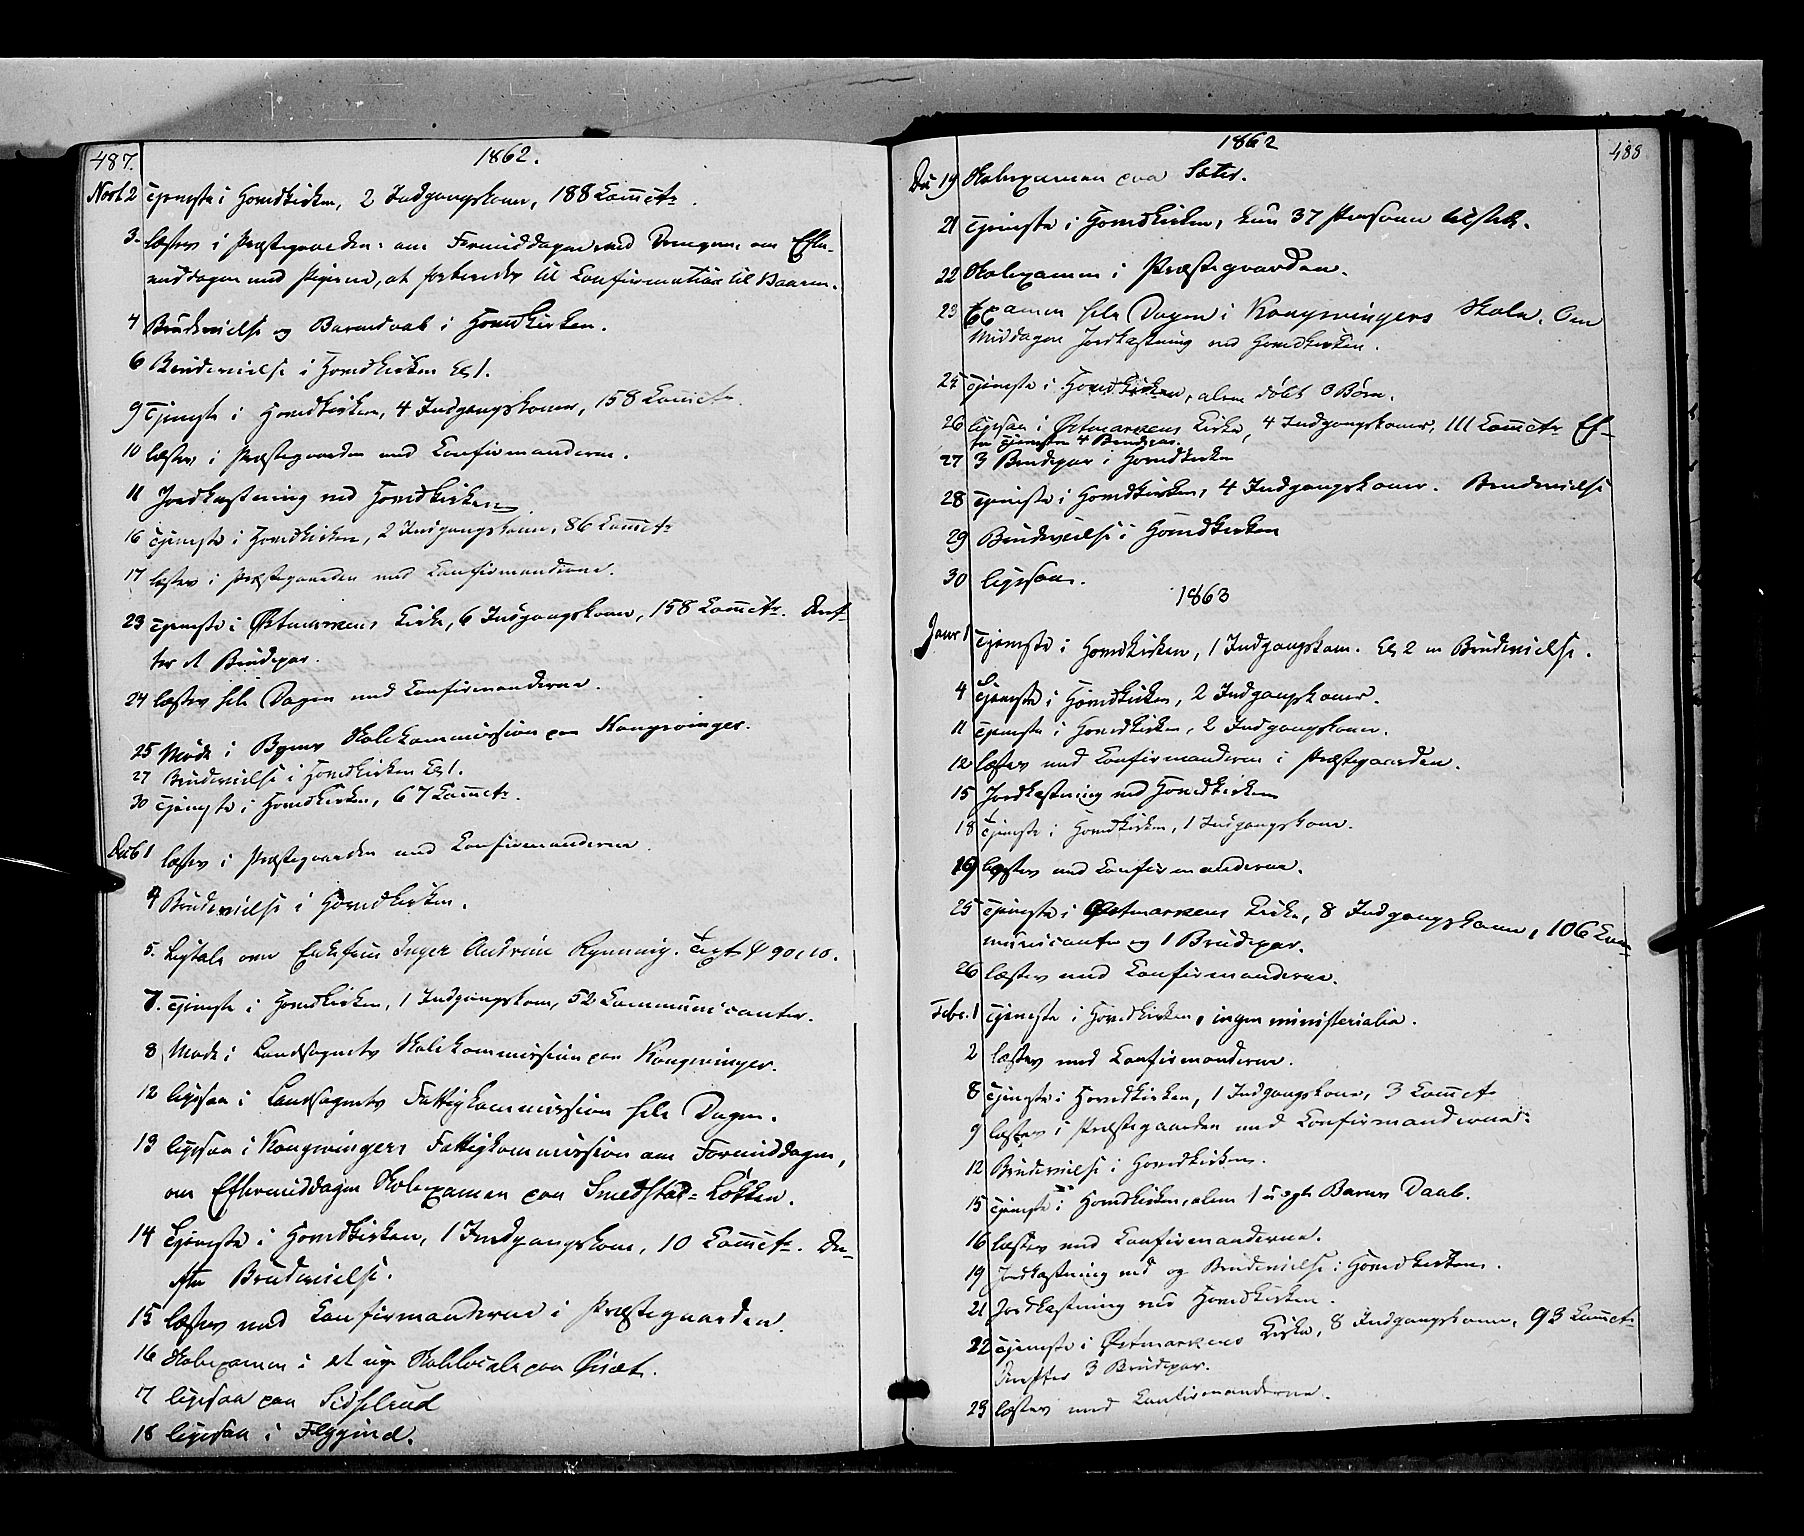 487.
1862.
Novb 2 Tjeneste i Hovedkirken, 2 Indgangskoner, 188 Comctr.
3. læstes i Præstegaarden: om Formiddagen med Drengene om Efter-
middagen med Pigerne, at forberedes til Confirmation til Vaaren.
4 Brudevielse og Barnedaab i Hovedkirken.
6 Brudevielse i Hovedkirken Kl 1.
9 Tjeneste i Hovedkirken, 4 Indgangskoner, 158 Comctr.
10 læstes i Præstegaarden med Confirmanderne.
11 Jordkastning ved Hovedkirken
16 Tjeneste i Hovedkirken, 2 Indgangskoner, 86 Comctr
17 læstes i Præstegaarden med Confirmanderne.
23 Tjeneste i Østmarkens Kirke, 6 Indgangskoner, 158 Comctr. Deref-
ter Brudepar.
24 læstes hele Dagen med Confirmanderne.
25 Møde i Byens Skolekommission paa Kongsvinger.
27 Brudevielse i Hovedkirken Kl 1.
30 Tjeneste i Hovedkirken, 67 Comctr.
Decb 1 læstes i Præstegaarden med Confirmanderne.
4 Brudevielse i Hovedkirken.
5. Ligtale over Inger Andrine Rynning. Text 90, 10.
7. Tjeneste i Hovedkirken, 1 Indgangskone, 52 Communicanter.
8 Møde i Landsognets Skolekommission paa Kongsvinger.
12 ligesaa i Landsognets Fattigkommission hele Dagen.
13 ligesaa i Kongsvingers Fattigkommission om Formiddagen,
om Eftermiddagen Skoleexamen paa Smedstad-Løkken.
14 Tjeneste i Hovedkirken, 1 Indgangskone, 10 Comctr. Der-
efter Brudevielse.
15 læstes med Confirmanderne i Præstegaarden.
16 Skoleexamen i et nyt Skolelocale paa Øiset.
17 ligesaa paa Sidselrud
18 ligesaa i
1862
488
Dec 19 Skoleexamen paa Sæter.
21 Tjeneste i Hovedkirken, kun 37 Personer tilstede.
22 Skoleexamen i Præstegaarden.
23 Examen hele Dagen i Kongsvingers Skole. Om
Middagen Jordkastning ved Hovedkirken.
25 Tjeneste i Hovedkirken, alene døbt 3 Børn.
26 ligesaa i Østmarkens Kirke, 4 Indgangskoner, 111 Comctr Ef-
ter Tjenesten 4 Brudepar.
27 3 Brudepar i Hovedkirken
28 Tjeneste i Hovedkirken, 4 Indgangskoner. Brudevielse
29 Brudevielse i Hovedkirken
30 ligesaa.
1863
Janr 1 Tjeneste i Hovedkirken, 1 Indgangskone. Kl 2 en Brudevielse.
4 Tjeneste i Hovedkirken, 2 Indgangskoner.
11 Tjeneste i Hovedkirken, 2 Indgangskoner.
12 læstes med Confirmanderne i Præstegaarden.
15 Jordkastning ved Hovedkirken
18 Tjeneste i Hovedkirken, 1 Indgangskone.
19 læstes med Confirmanderne.
25 Tjeneste i Østmarkens Kirke, 8 Indgangskoner, 106 Com-
municanter og 1 Brudepar.
26 læstes med Confirmanderne.
Febr. 1 Tjeneste i Hovedkirken, ingen ministerialia.
2 læstes med Confirmanderne.
8 Tjeneste i Hovedkirken, 1 Indgangskone, 3 Comctr
9 læstes i Præstegaarden med Confirmanderne.
12 Brudevielse i Hovedkirken.
15 Tjeneste i Hovedkirken, alene 1 uægte Barns Daab.
16 læstes med Confirmanderne.
19 Jordkastning ved og Brudevielse i Hovedkirken.
21 Jordkastning ved Hovedkirken.
22 Tjeneste i Østmarkens Kirke, 8 Indgangskoner, 93 Comctr
Derefter 3 Brudepar.
23 læstes med Confirmanderne.